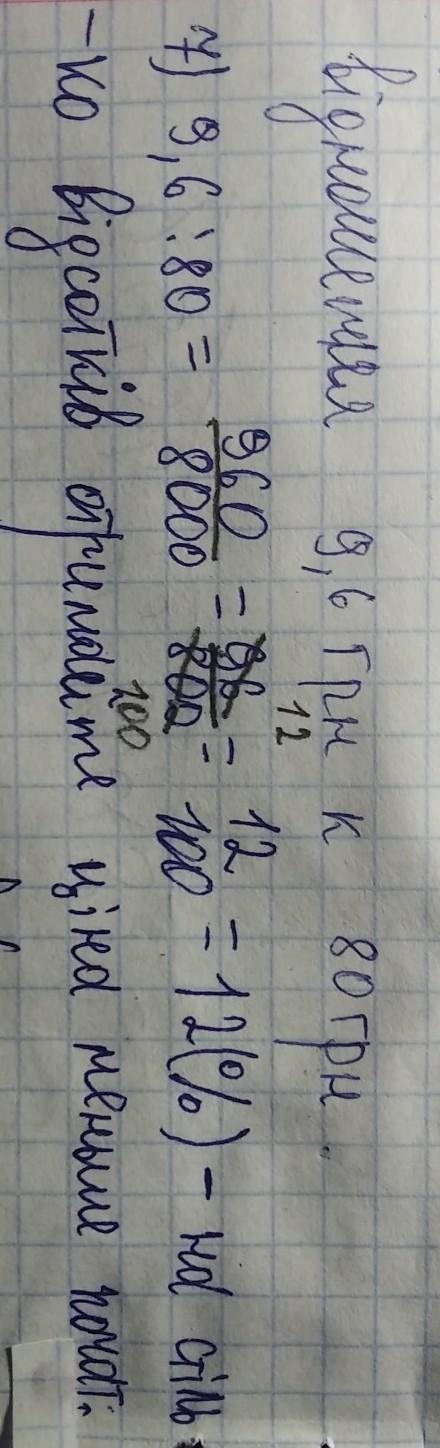 відношення 9,6 грн к 80 грн.
7) 9,6 : 80 = 960/8000 = 96/800 = 12/100 = 12(%) – на стіль
12
100
– ко відсотків отримаєте ціна меньше почат.